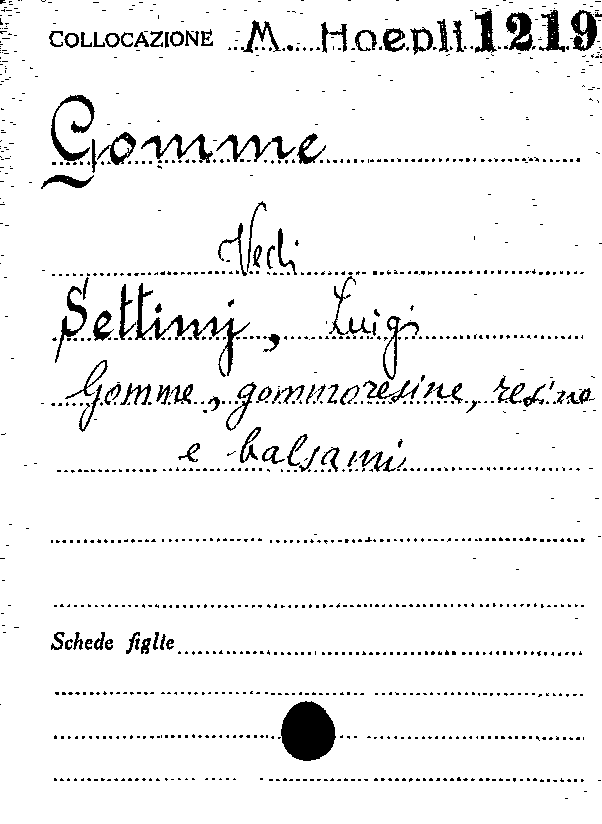 COLLOCAZIONE M. Hoepli 1219
Gomme
Vedi
Settimj, Luigi
Gomme, gommoresine, resine
e balsami
Schede figlie